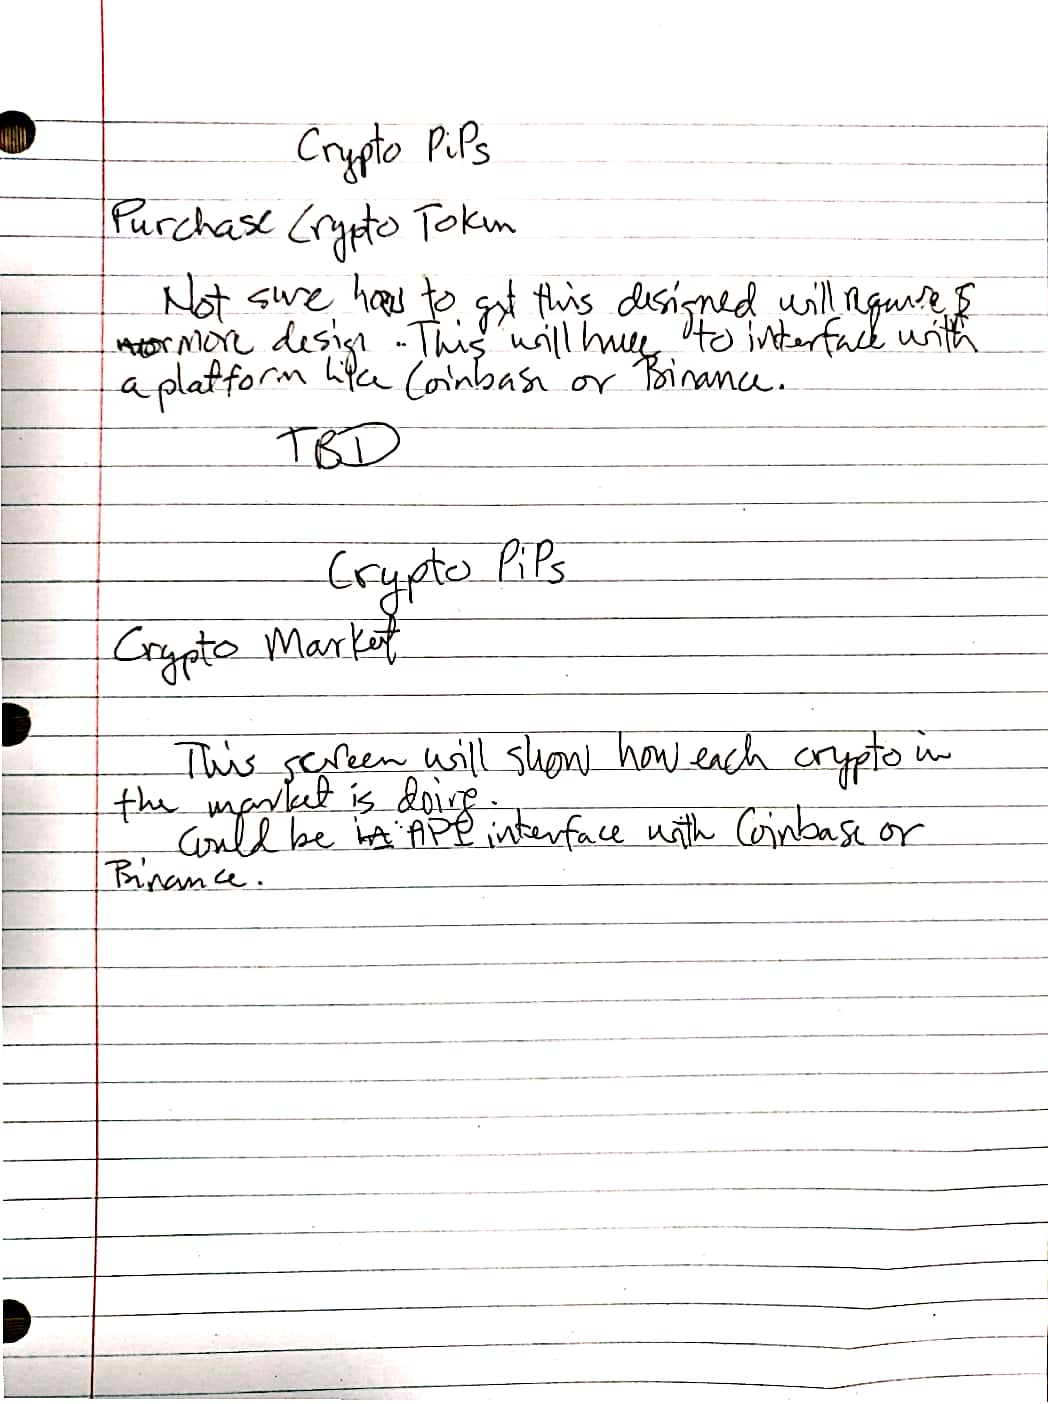 Crypto PiPs
Purchase Crypto Token
Not sure how to get this designed will require
more design. This will have to interface with
a platform like Coinbase or Binance.
TBD
Crypto PiPs
Crypto Market
This screen will show how each crypto in
the market is doing.
Could be API interface with Coinbase or
Binance.